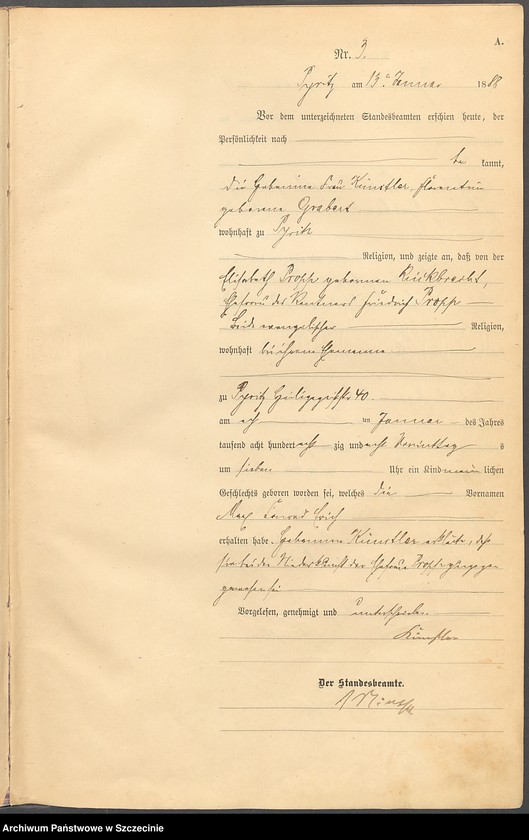 A.
Nr. 3.
Pyritz am 13. Januar 1888
Vor dem unterzeichneten Standesbeamten erschien heute, der
Persönlichkeit nach
be kannt,
die Hebamme Frau Künstler, Florentine
geborene Grabert
wohnhaft zu Pyritz
Religion, und zeigte an, daß von der
Elisabeth Propp geborenen Rückbrecht,
Ehefrau des Rentners Friedrich Propp
Beide evangelischer Religion,
wohnhaft bei ihrem Ehemanne
zu Pyritz Heiligegeiststr 40
am Januar des Jahres
tausend acht hundert acht zig und acht Vormittag s
um sieben Uhr ein Kind männ lichen
Geschlechts geboren worden sei, welches die Vornamen
Max Conrad Erich
erhalten habe. Hebamme Künstler erklärte, daß
sie bei der Niederkunft der Ehefrau Propp zugegen
gewesen sei
Vorgelesen, genehmigt und unterschrieben
Künstler
Der Standesbeamte.
Archiwum Państwowe w Szczecinie